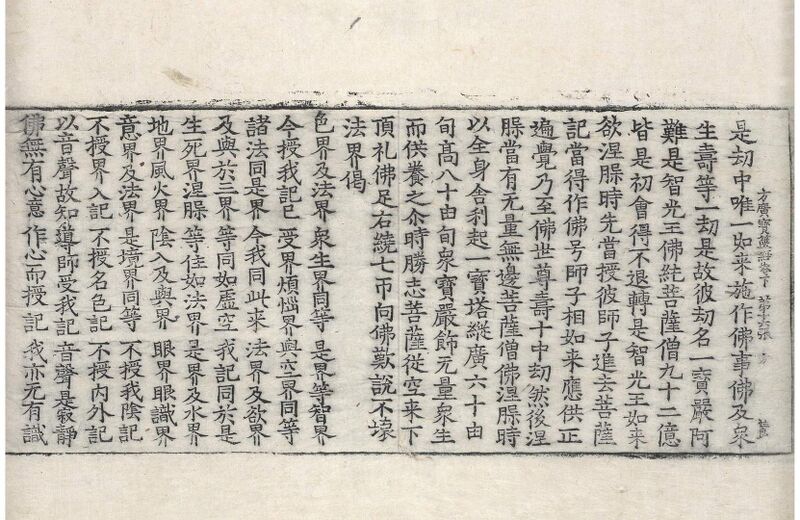 是劫中唯一如来施作佛事佛及衆
方廣寶篋經卷下 第十六張 方
生壽等一劫是故彼劫名一寶嚴阿
難是智光王佛純菩薩僧九十二億
皆是初會得不退轉是智光王如来
欲涅槃時先當授彼師子進去菩薩
記當得作佛号師子相如来應供正
遍覺乃至佛世尊壽十中劫然後涅
槃當有无量無邊菩薩僧佛涅槃時
以全身舎利起一寶塔縱廣六十由
旬高八十由旬衆寶嚴飾无量衆生
而供養之尒時勝志菩薩從空来下
頂礼佛足右繞七帀向佛歎說不壊
法界偈
色界及法界 衆生界同等 是界等智界
今授我記已 受界煩惱界 與空界同等
諸法同是界 今我同此来 法界及欲界
及與於三界 等同如虛空 我記同於是
生死界涅槃 等住如法界 是界及水界
地界風火界 陰入及與界 眼界眼識界
意界及法界 是境界同等 不授我陰記
不授界入記 不授名色記 不授内外記
以音聲故知 導師受我記 音聲是寂靜
佛無有心意 作心而授記 我亦无有識